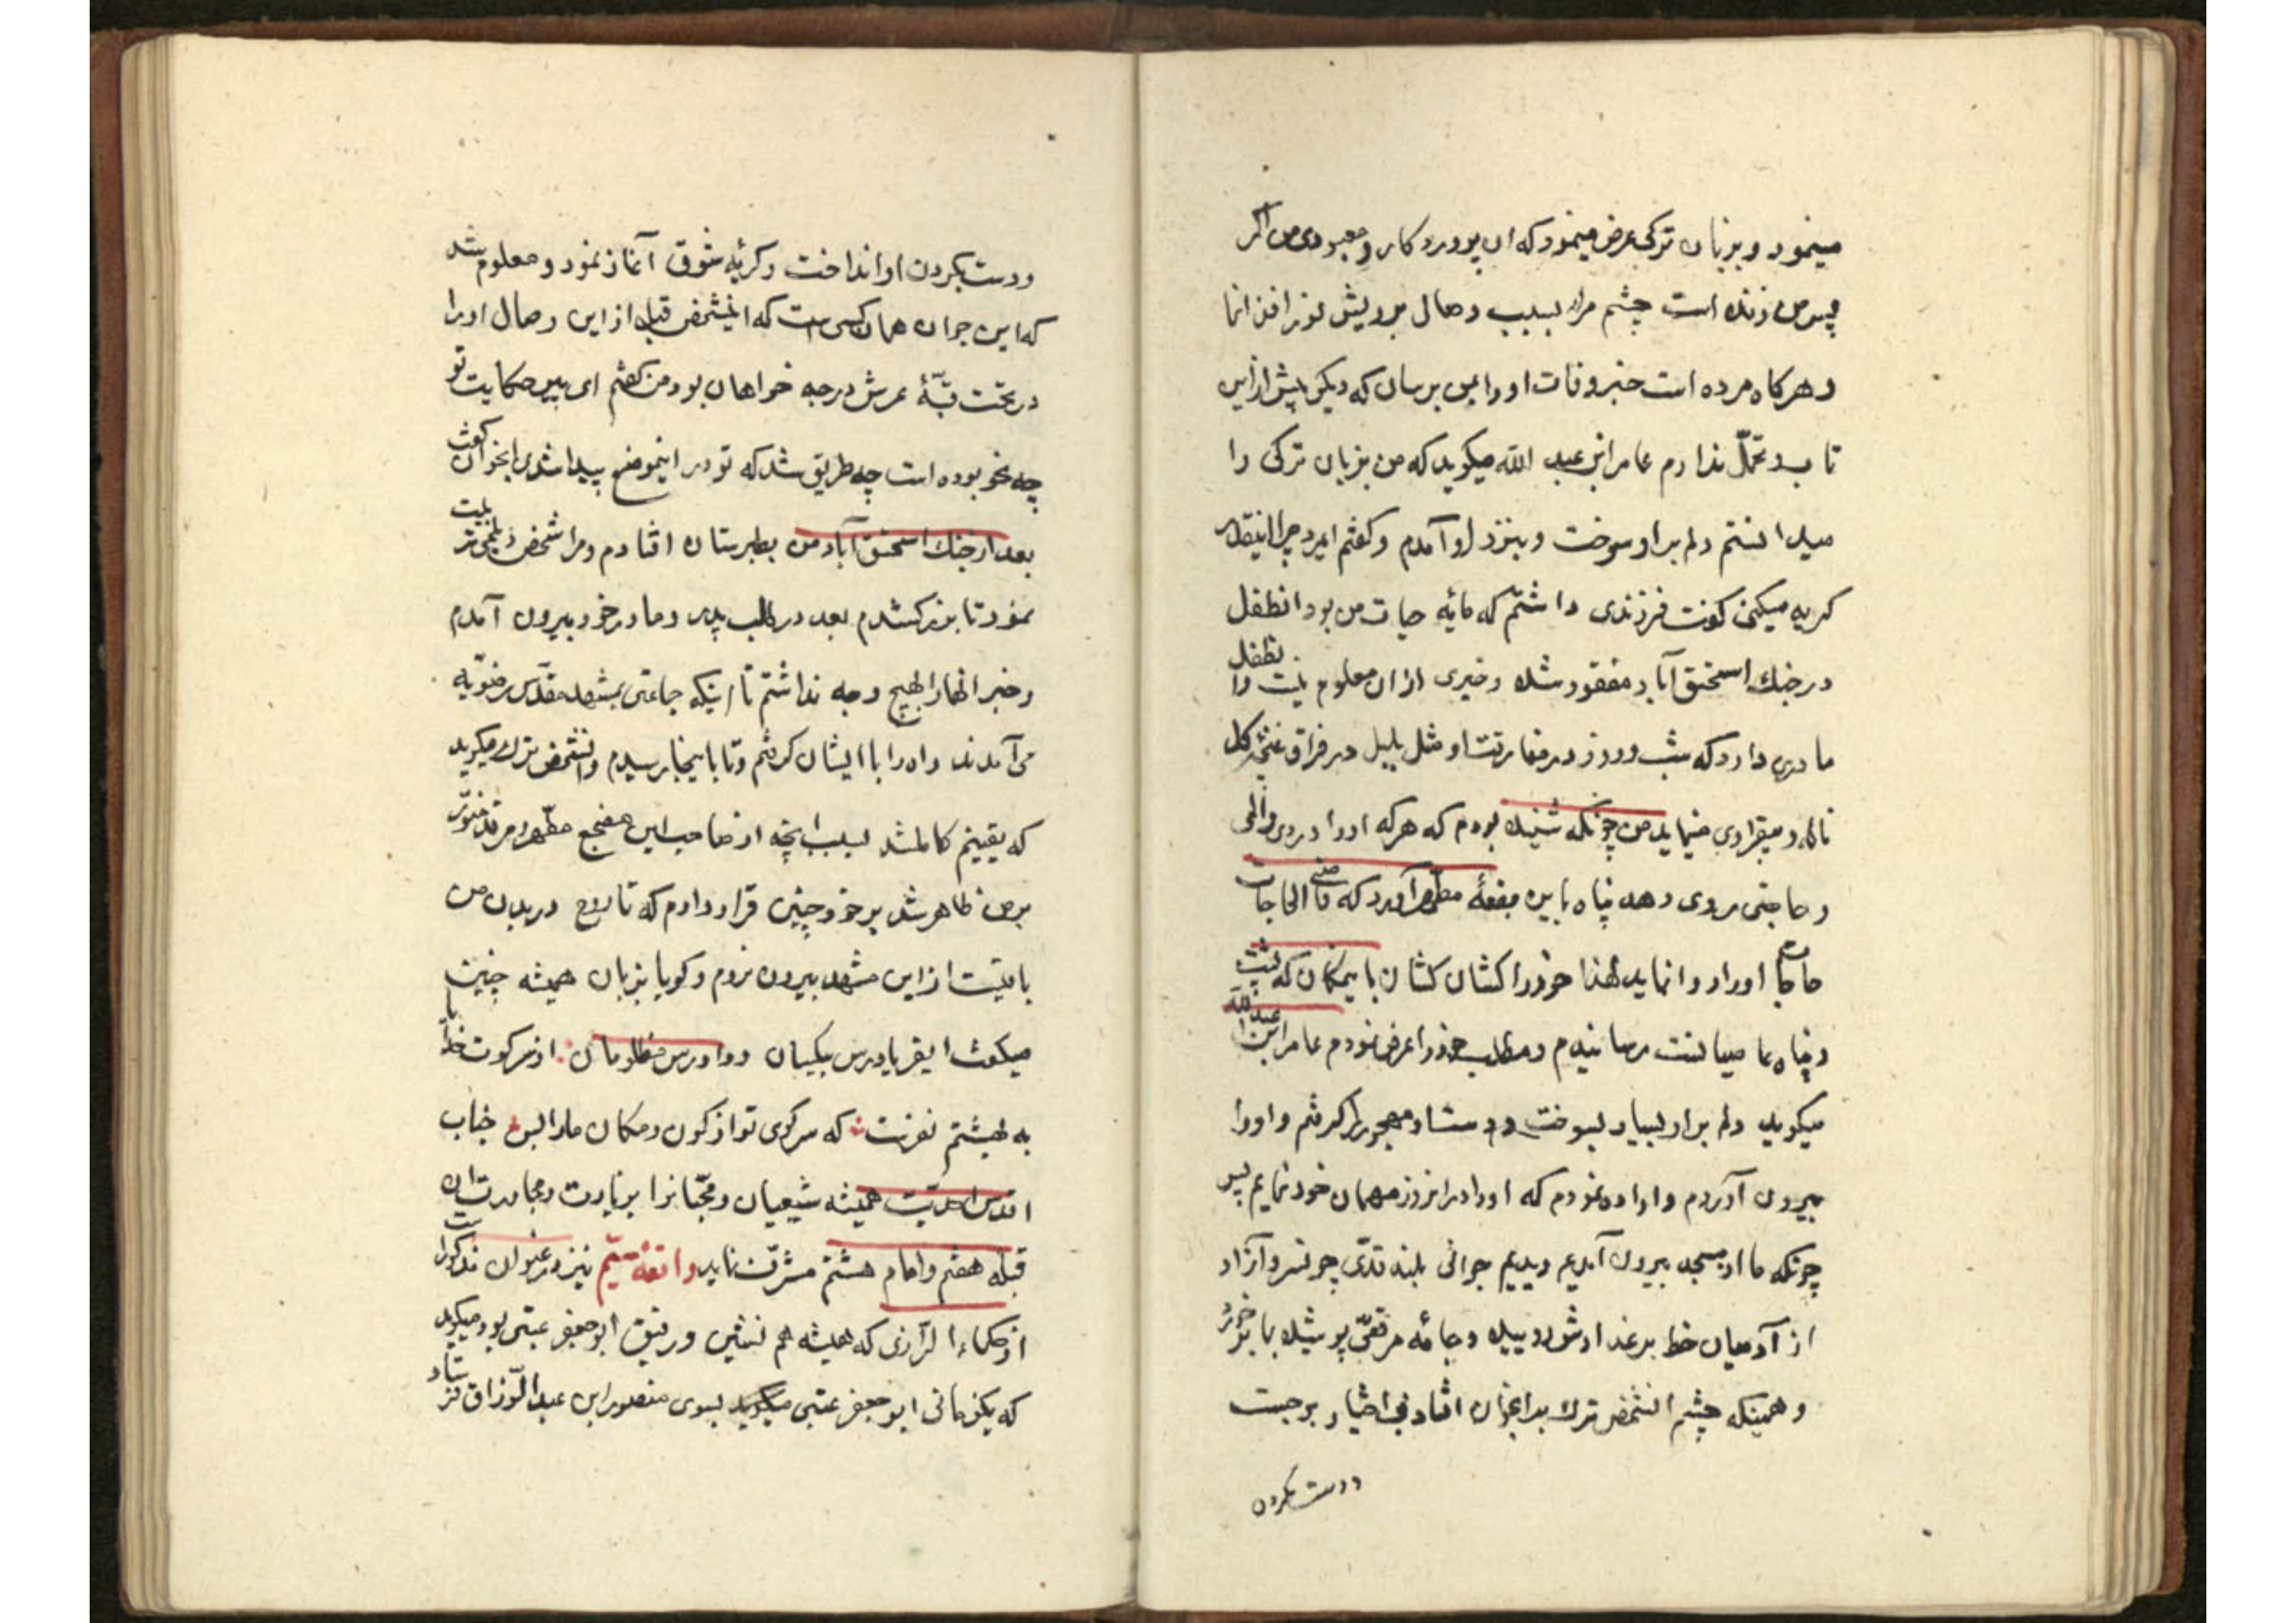 مینمود و بزبان ترکی عرض مینمود که ای پروردکار و معبود من اکر
پسر من زنده است چشم مرا بسبب وصال برویش نور افزا نما
و هر کاه مرده است خبر وفات او را بمن برسان که دیکر بیش از این
تاب و تحمّل ندارم عامر ابن عبد الله میکوید که من بزبان ترکی را
میدانستم دلم بر او سوخت و بنزد او آمدم و کفتم ایمرد چرا اینقدر
کریه میکنی کفت فرزندی داشتم که مایه حیات من بود انطفل
در جنك اسحق آباد مفقود شده و خبری از ان معلوم نیست و انطفل را
مادری دارد که شب و روز در مفارقت او مثل بلبل در فراق غنچه کل
ناله و بیقراری مینماید من چونکه شنیده بودم که هر که او را دردی و المی
و حاجتی روی دهد پناه باین بقعهٔ مطهر آورد که قاضی الحاجات
حاجات او را روا نماید لهذا خود را کشان کشان باینمکان که پشت
و پناه ما میباشد رسانیدم و مطلب خود را عرض نمودم عامر ابن عبدالله
میکوید دلم بر او بسیار بسوخت و دست او مهجور را کرفتم و او را
بیرون آوردم و اراده نمودم که او را در انروز مهمان خود نمایم پس
چونکه ما از مسجد بیرون آمدیم دیدیم جوانی بلند قدّی چو سرو آزاد
از آدمیان خط بر عذارش دمیده و جامه مرقعی پوشیده با برخورد
و همینکه چشم انشخص ترك بدانجوان افتاد بی اختیار برجست
ودست بکردن
ودست بکردن او انداخت و کریه شوق آغاز نمود و معلوم شد
که این جوان همان کسی ست که اینشخص قبل از این وصال او را
در تحت قبّهٔ عرش درجه خواهان بود من کفتم ای پسر حکایت تو
چه نحو بوده است چه طریق شد که تو در اینموضع پیدا شدی انجوان کفت
بعد از جنك اسحق آباد من بطبرستان افتادم و مرا شخص دیلمی تربیت
نمود تا بزرك شدم بعد در طلب پدر و مادر خود بیرون آمدم
و خبر انها را بهیچ وجه نداشتم تا اینکه جماعتی بمشهد مقدّس رضویه
می آمدند راه را با ایشان کرفتم و تا باینجا رسیدم و انشخص ترك میکوید
که یقینم کامل شد بسبب اینچه از صاحب این مضجع مطهر و مرقد منوّر
بر من ظاهر شد بر خود چنین قرار دادم که تا روح در بدن من
باقیست از این مشهد بیرون نروم و کویا بزبان همیشه چنین
میکفت ایفریادرس بیکسان و دادرس مظلومان از سر کویت خدا را
به بهشتم نفرست که سر کوی تو از کون و مکان ما را بس جناب
اقدس احدیّت همیشه شیعیان و محبّانرا بزیارت و مجاورت ان
قبله هفتم و امام هشتم مشرّف نماید واقعه سیّم نیز در عنوان مذکور است
از حکماء الرازی که همیشه هم نشین و رفیق ابو جعفر عتبی بود میکوید
که یکزمانی ابو جعفر عتبی میکوید بسوی منصور ابن عبدالرّزاق فرستاد